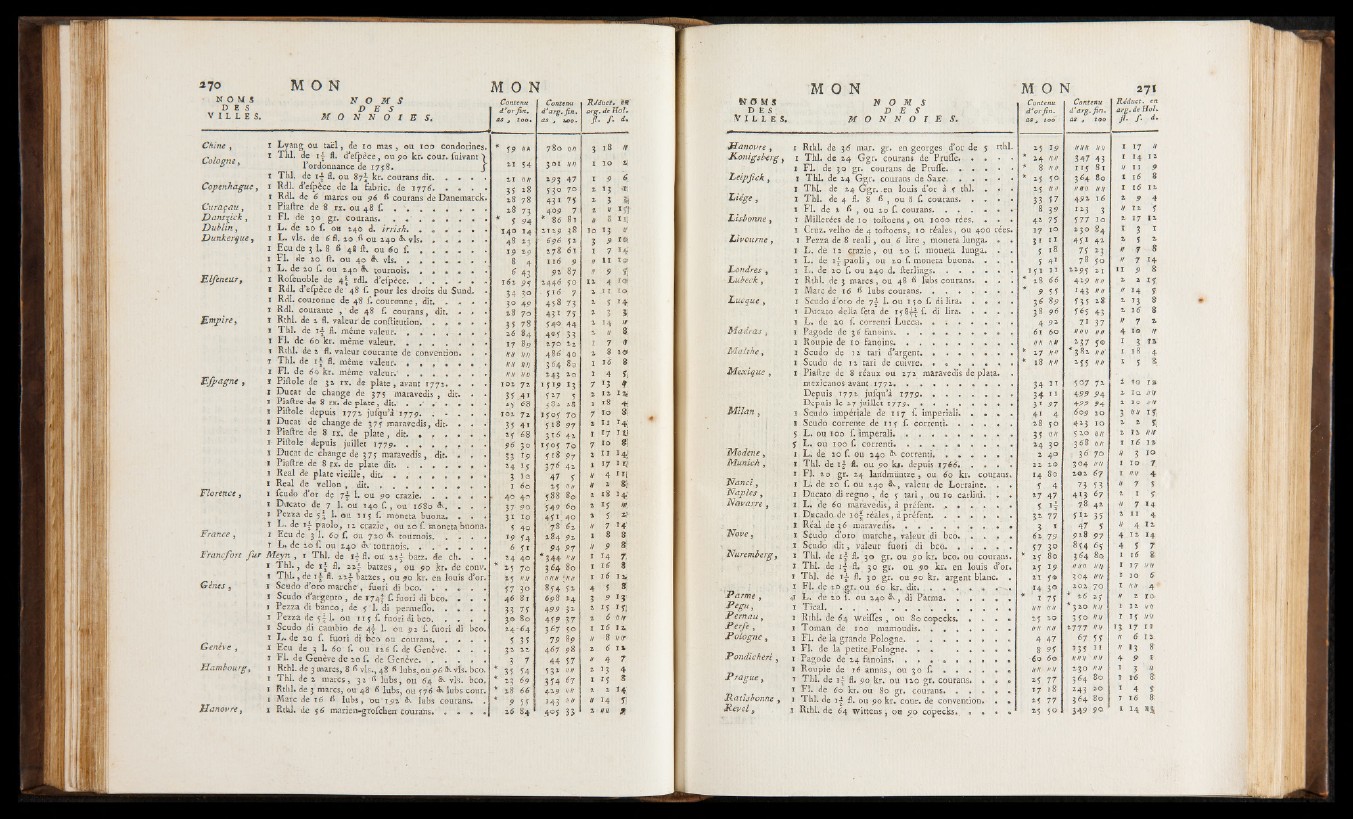 270 MON MON
NOMS DES VILLES. NOMS DES MONNOIES. Contenu d'or fin. as, 100. Contenu d'arg. fin. as, 100. Réduct. en arg. de Hol. fl. s. d.
Chine, 1 Lyang ou taël, de 10 mas, ou 100 condorines. * 59 nn 780 nn 3 18 n
Cologne, 1 Thl. de 1½ fl. d'espèce, ou 90 kr. cour. suivant
l'ordonnance de 1758. 21 54 301 nn 1 10 2
1 Thl. de 1½ fl. ou 87½ kr. courans dit. 21 0n 293 47 1 9 6
Copenhague, 1 Rdl. d'espèce de la fabric. de 1776. 35 28 530 70 2 13
1 Rdl. de 6 marcs ou 96 ß courans de Danemarck. 28 78 431 75 2 3
Curaçau, 1 Piastre de 8 rx. ou 48 ſ. 28 73 409 7 2
Dantzick, 1 Fl. de 30 gr. courans. * 5 94 * 86 81 n 8
Dublin, 1 L. de 20 ſ. ou 240 d. irrish. 140 14 2129 38 10 13 n
Dunkerque, 1 L. vls. de 6 fl. 20 ß ou 240 ₰ vls. 48 23 696 52 3 9 10
1 Ecu de 3 l. 8 ß 48 fl. ou 60 ſ. 19 29 278 61 1 7 14
1 Fl. de 20 ſt. ou 40 ₰ vls. 8 4 116 9 n 11 10
1 L. de 20 ſ. ou 240 ₰ tournois. 6 43 92 87 n 9 5
Elseneur, 1 Rosenoble de 4½ rdl. d'espèce. 162 95 2446 50 12 4 10
1 Rdl. d'espèce de 48 ſ. pour les droits du Sund. 34 30 516 9 2 11 10
1 Rdl. couronne de 48 ſ. couronne, dit. 30 49 458 73 2 5 14
1 Rdl. courante, de 48 ſ. courans, dit. 28 70 431 75 2 3 3
Empire, 1 Rthl. de 2 fl. valeur de constitution. 35 78 540 44 2 14 n
1 Thl. de 1½ fl. même valeur. 26 84 405 33 2 n 8
1 Fl. de 60 kr. même valeur. 17 89 270 22 1 7 n
1 Rthl. de 2 fl. valeur courante de convention. nn nn 486 40 2 8 10
1 Thl. de 1½ fl. même valeur. nn nn 364 80 1 16 8
1 Fl. de 60 kr. même valeur. nn nn 243 20 1 4 5
Espagne, 1 Pistole de 32 rx. de plate, avant 1772. 102 72 1519 13 7 13 4
1 Ducat de change de 375 maravedis, dit. 35 41 527 5 2 12 12
1 Piastre de 8 rx. de plate, dit. 25 68 482 28 2 18 4
1 Pistole depuis 1772 jusqu'à 1779. 102 72 1505 70 7 10 8
1 Ducat de change de 375 maravedis, dit. 35 41 518 97 2 11 14
1 Piastre de 8 rx. de plate, dit. 25 68 316 42 1 17
1 Pistole depuis juillet 1779. 96 30 1505 70 7 10 8
1 Ducat de change de 375 maravedis, dit. 33 19 518 97 2 11 14
1 Piastre de 8 rx. de plate dit. 24 15 376 42 1 17
1 Real de plate vieille, dit. 3 12 47 5 n 4
1 Real de vellon, dit. 1 60 25 nn n 2 8
Florence, 1 scudo d'or de 7½ l. ou 90 crazie. 40 40 588 80 2 18 14
1 Ducato de 7 l. ou 140 ſ., ou 1680 ₰. 37 90 549 60 2 15 n
1 Pezza de 5¾ l. ou 115 ſ. moneta buona. 31 10 451 40 2 5 2
1 L. de 1½ paolo, 12 crazie, ou 20 ſ. moneta buona. 5 40 78 62 n 7 14
France, 1 Ecu de 3 l. 60 ſ. ou 720 ₰ tournois. 19 54 284 92 1 8 8
1 L. de 20 ſ. ou 240 ₰ tournois. 6 51 94 97 n 9 8
Francfort sur Meyn, 1 Thl. de 1½ fl. ou 22½ batz. de ch. 24 40 * 344 nn 1 14 7
1 Thl., de 1½ fl. 22½ batzes, ou 90 kr. de conv. * 25 70 364 80 1 16 8
1 Thl., de 1½ fl. 22½ batzes, ou 90 kr. en louis d'or. 25 nn nnn nn 1 16 12
Gênes, 1 Scudo d'oro marche, fuori di bco. 57 30 854 52 4 5 8
1 Scudo d'argento, de 174½ ſ. fuori di bco. 46 81 698 24 3 9 13
1 Pezza di banco, de 5 l. di permesso. 33 75 499 32 2 15
1 Pezza de 5¾ l. ou 115 ſ. fuori di bco. 30 80 459 37 2 6
1 Scudo di cambio de 4⅗ l. ou 92 ſ. fuori di bco. 24 64 367 50 1 16 12
1 L. de 20 ſ. fuori di bco ou courans. 5 35 79 89 n 8 nn
Genève, 1 Ecu de 3 l. 60 ſ. ou 126 ſ. de Genève. 32 22 467 98 2 6 12
1 Fl. de Genève de 20 ſ. de Genève. 3 7 44 57 n 4 7
Hambourg, 1 Rthl. de 3 marcs, 8 ß vls., 48 ß lubs, ou 96 ₰ vls. bco. * 35 54 532 nn 2 13 4
1 Thl. de 2 marcs, 32 ß lubs, ou 64 ₰ vls. bco. * 23 69 354 67 1 15 8
1 Rthl. de 3 marcs, ou 48 ß lubs, ou 576 ₰ lubs cour. * 28 66 429 nn 2 2 14
1 Marc de 16 ß lubs, ou 192 ₰ lubs courans. * 9 55 143 nn n 14 5
Hanovre, 1 Rthl. de 36 marien-groschen courans. 26 84 405 33 2 nn
MON MON 271
NOMS DES VILLES. NOMS DES MONNOIES. Contenu d'or fin. as, 100 Contenu d'arg. fin. as, 100 Réduct. en arg. de Hol. fl. s. d.
Hanovre, 1 Rthl. de 36 mar. gr. en georges d'or de 5 rthl. 25 19 nnn nn 1 17 n
Konigsberg, 1 Thl. de 24 Ggr. courans de Prusse. * 24 nn 347 43 1 14 12
1 Fl. de 30 gr. courans de Prusse. * 8 nn 115 81 n 11 9
Leipsick, 1 Thl. de 24 Ggr. courans de Saxe. * 25 50 364 80 1 16 8
1 Thl. de 24 Ggr. en louis d'or à 5 thl. 25 nn nnn nn 1 16 12
Liége, 1 Thl. de 4 fl. 8 ß, ou 8 ſ. courans. 33 57 492 16 2 9 4
1 Fl. de 2 ß, ou 20 ſ. courans. 8 39 123 3 n 12 5
Lisbonne, 1 Millerées de 10 tostoens, ou 1000 rées. 42 75 577 10 2 17 12
1 Cruz. velho de 4 tostoens, 10 réales, ou 400 rées. 17 10 230 84 1 3 1
Livourne, 1 Pezza de 8 reali, ou 6 lire, moneta lunga. 31 11 451 42 2 5 2
1 L. de 12 crazie, ou 20 ſ. moneta lunga. 5 18 75 23 n 7 8
1 L. de 1½ paoli, ou 20 ſ. moneta buona. 5 41 78 50 n 7 14
Londres, 1 L. de 20 ſ. ou 240 d. sterlings. 151 11 2295 21 11 9 8
Lubeck, 1 Rthl. de 3 marcs, ou 48 ß lubs courans. * 28 66 429 nn 2 2 15
1 Marc de 16 ß lubs courans. * 9 55 143 nn n 14 5
Lucque, 1 Scudo d'oro de 7½ l. ou 150 ſ. di lira. 36 89 535 28 2 13 8
1 Ducato della seta de ſ. di lira. 38 96 565 43 2 16 8
1 L. de 20 ſ. correnti Lucca. 4 92 71 37 n 7 2
Madras, 1 Pagode de 36 fanoins. 61 60 nnn nn 4 10 n
1 Roupie de 10 fanoins. nn nn 237 50 1 3 12
Malthe, 1 Scudo de 12 tari d'argent. * 27 nn * 382 nn 1 18 4
1 Scudo de 12 tari de cuivre. * 18 nn 255 nn 1 5 8
Mexique, 1 Piastre de 8 réaux ou 272 maravedis de plata.
mexicanos avant 1772. 34 11 507 72 2 10 12
Depuis 1772 jusqu'à 1779. 34 11 499 94 2 10 nn
Depuis le 27 juillet 1779. 31 97 499 94 2 10 nn
Milan, 1 Scudo impériale de 117 ſ. imperiali. 41 4 609 20 3 nn 15
1 Scudo corrente de 115 ſ. correnti. 28 50 423 10 2 2 5
5 L. ou 100 ſ. imperali. 35 nn 520 nn 2 12 nn
5 L. ou 100 ſ. correnti. 24 30 368 nn 1 16 12
Modene, 1 L. de 20 ſ. ou 240 ₰ correnti. 2 40 36 70 n 3 10
Munich, 1 Thl. de 1½ fl. ou 90 kr. depuis 1766. 22 20 304 nn 1 10 7
1 Fl. 20 gr. 24 landmüntze, ou 60 kr. courans. 14 80 202 67 1 nn 4
Nanci, 1 L. de 20 ſ. ou 240 ₰, valeur de Lorraine. 5 4 73 53 n 7 5
Naples, 1 Ducato di regno, de 5 tari, ou 10 carlini. 27 47 413 67 2 1 5
Navarre, 1 L. de 60 maravedis, à présent. 5 78 42 n 7 14
1 Ducado de 10⅞ réales, à présent. 32 77 512 35 2 11 4
1 Réal de 36 maravedis. 3 1 47 5 n 4 12
Nove, 1 Scudo d'oro marche, valeur di bco. 62 79 928 97 4 12 14
1 Scudo dit, valeur fuori di bco. 57 30 854 65 4 5 7
Nuremberg, 1 Thl. de 1½ fl. 30 gr. ou 90 kr. bco. ou courans. 25 80 364 80 1 16 8
1 Thl. de 1½ fl. 30 gr. ou 90 kr. en louis d'or. 25 19 nnn nn 1 17 nn
1 Thl. de 1½ fl. 30 gr. ou 90 kr. argent blanc. 21 50 304 nn 1 10 6
1 Fl. de 20 gr. ou 60 kr. dit. 14 30 202 70 1 nn 4
Parme, 1 L. de 20 ſ. ou 240 ₰, di Parma. * 1 75 * 26 25 n 2 10
Pegu, 1 Tical. nn nn * 320 nn 1 12 nn
Pernau, 1 Rthl. de 64 weisses, ou 80 copecks. 25 20 350 nn 1 15 nn
Perse, 1 Toman de 100 mamoudis. nn nn 2777 nn 13 17 11
Pologne, 1 Fl. de la grande Pologne. 4 47 67 55 n 6 12
1 Fl. de la petite Pologne. 8 95 135 11 n 13 8
Pondicheri, 1 Pagode de 24 fanoins. 60 60 nnn nn 4 9 1
1 Roupie de 16 annas, ou 30 ſ. nn nn 230 nn 1 3 n
Prague, 1 Thl. de 1½ fl. 90 kr. ou 120 gr. courans. 25 77 364 80 1 16 8
1 Fl. de 60 kr. ou 80 gr. courans. 17 18 243 20 1 4 5
Ratisbonne, 1 Thl. de 1½ fl. ou 90 kr. cour. de convention. 25 77 364 80 1 16 8
Revel, 1 Rthl. de 64 wittens, ou 90 copecks. 25 50 349 90 1 14